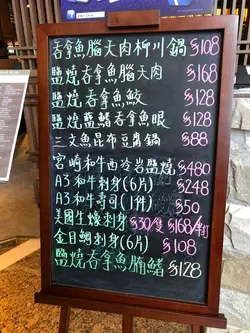 吞拿魚腦天肉柳川鍋 $108
鹽燒吞拿魚腦天肉 $168
鹽燒吞拿魚鮫 $128
鹽燒藍鰭吞拿魚眼 $128
三文魚昆布豆腐鍋 $88
宮崎和牛西冷岩鹽燒 $480
A3和牛刺身(6片) $248
A3和牛壽司(1件) $50
美國生蠔刺身 $30/隻 $168/半打
金目鯛刺身(6片) $108
鹽燒吞拿魚腩鰭 $128